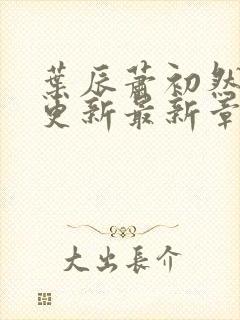 葉辰蕭初然
更新最新章
大出長介